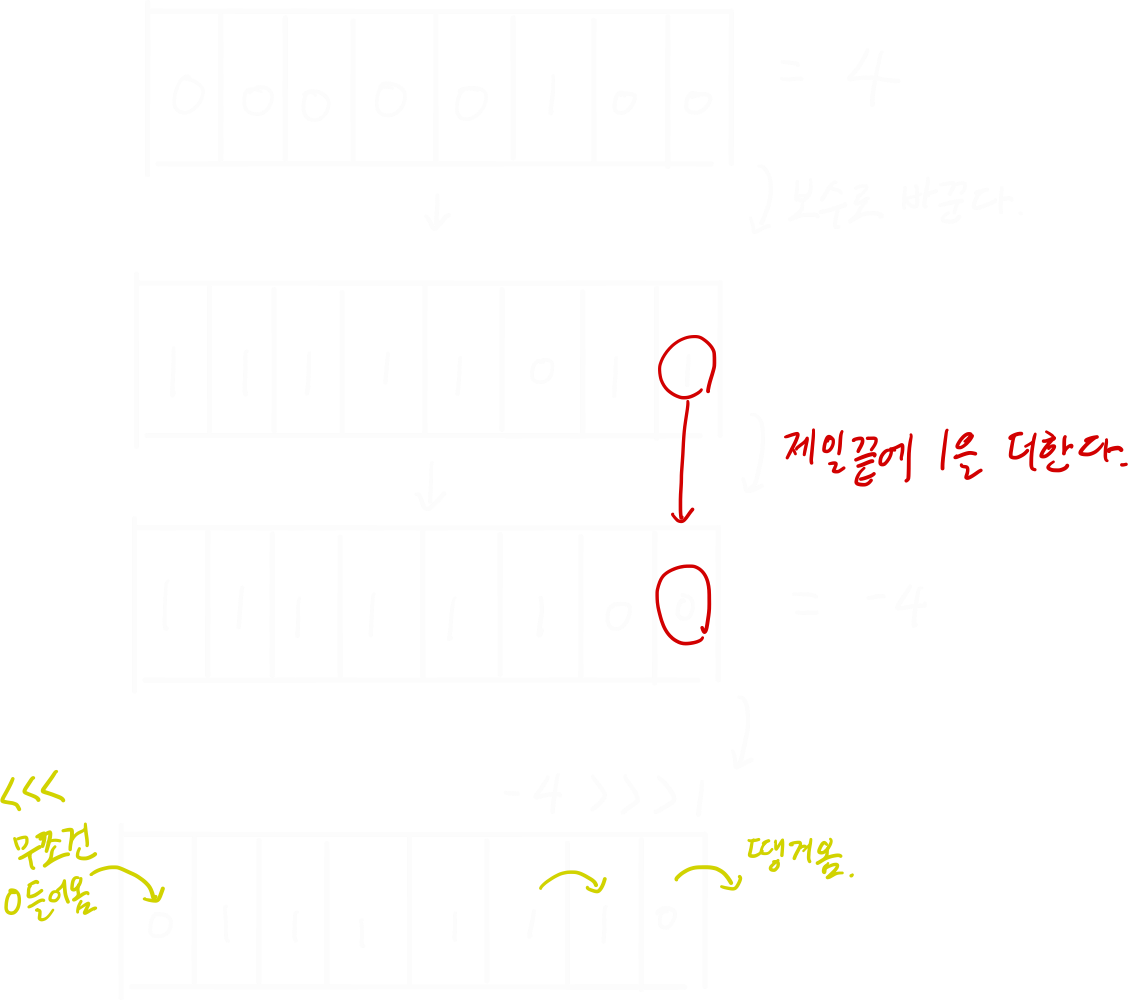 0 0 0 0 0 1 0 0 = 4
보수로 바꾼다.
1 1 1 1 1 0 1
제일끝에 1을 더한다.
1 1 1 1 1 1 0 0 = -4
-4 >>> 1
<<<
무조건
0들어옴
땡겨옴.
0 1 1 1 1 1 1 0